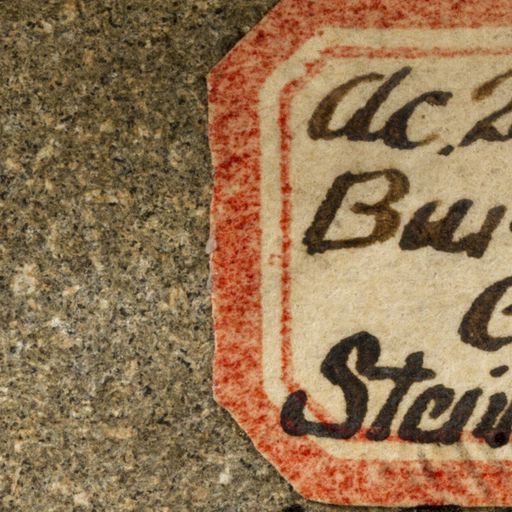 ac. 2
Bur
G
Stein